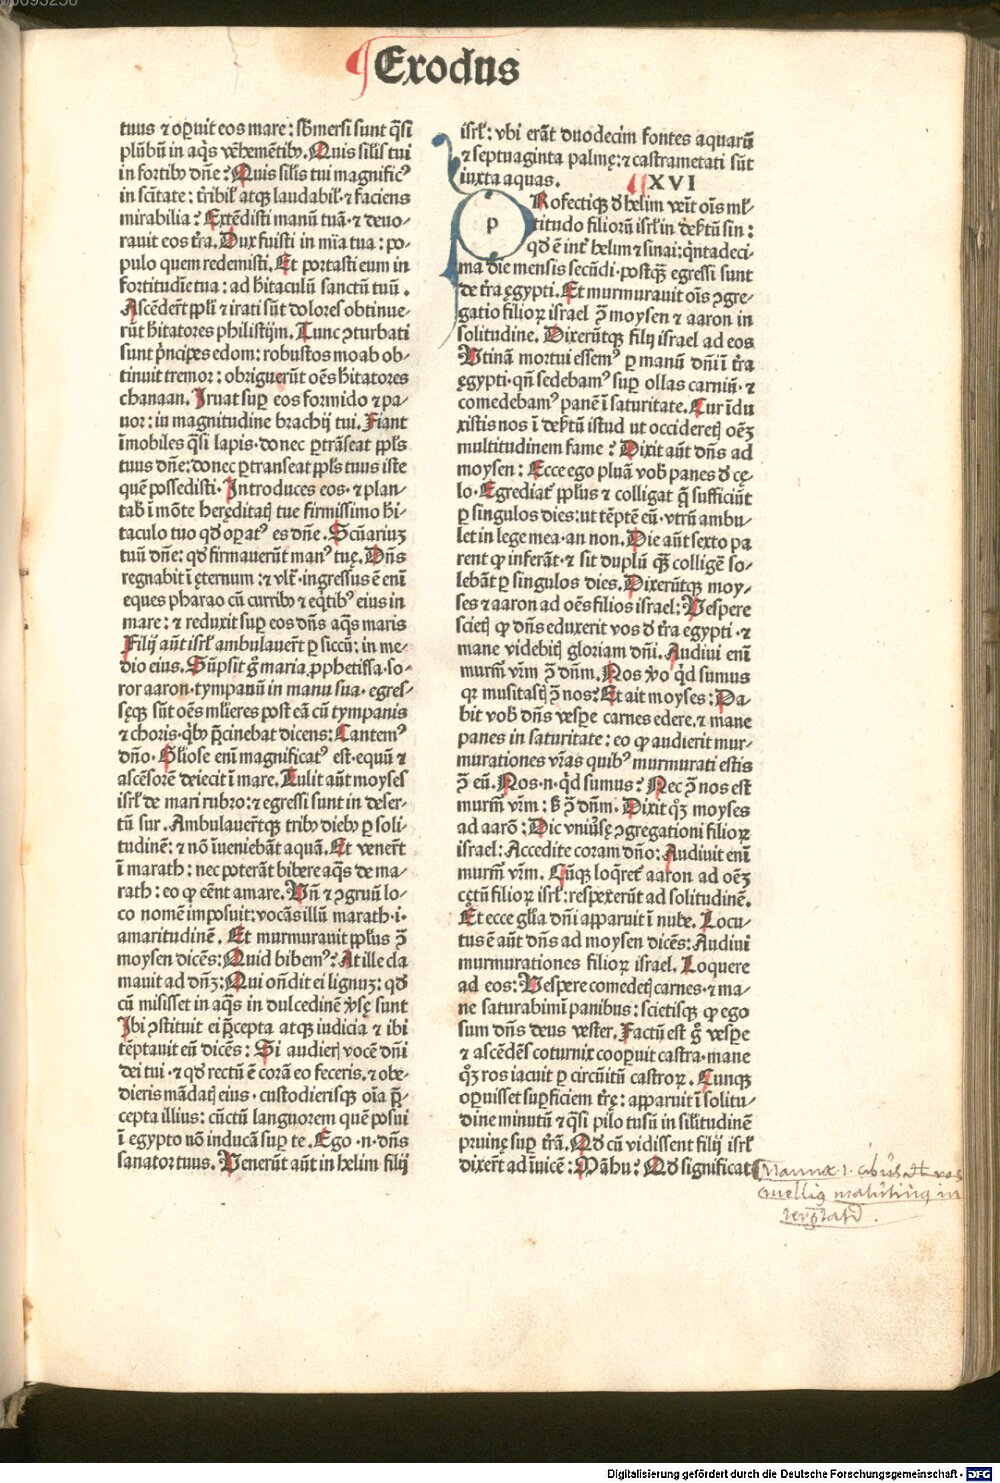 Exodus
tuus ⁊ oꝑuit eos mare: sb̄mersi sunt q̄si
plūbū in aq̄s vēhemētibꝰ. Quis silis tui
in fortibꝰ dn̄e? Quis silis tui magnificꝰ
in scītate: tribil' atqꝫ laudabil' ⁊ faciens
mirabilia? Extēdisti manū tuā· ⁊ deuo-
rauit eos tr̄a. Dux fuisti in mīa tua: po-
pulo quem redemisti. Et portasti eum in
fortitudīe tua: ad hītaculū sanctū tuū.
Ascēder̄t ppl'i ⁊ irati sūt dolores obtinue-
rūt hītatores philistijm. Tunc ꝯturbati
sunt pͥncipes edom: robustos moab ob-
tinuit tremor: obriguerūt oēs hītatores
chanaan. Iruat suꝑ eos formido ⁊ pa-
uor: iu magnitudine brachij tui. Fiant
īmobiles q̄si lapis· donec ꝑtrāseat ppl's
tuus dn̄e: donec ꝑtranseat ppl's tuus iste
quē possedisti. Introduces eos· ⁊ plan-
tab' ī mōte heręditatꝭ tue firmissimo hī-
taculo tuo qd' oꝑatꝰ es dn̄e. Scn̄ariuꝫ
tuū dn̄e: qd' firmauerūt manꝰ tuę. Dn̄s
regnabit ī ęternum: ⁊ vlt̄· ingressus ē enī
eques pharao cū curribꝰ ⁊ eq̄tibꝰ eius in
mare: ⁊ reduxit suꝑ eos dn̄s aq̄s maris
Filij aūt isrl' ambulauer̄t ꝑ siccū: in me-
dio eius. Sūpsit gͦ maria ꝓphetissa· so-
ror aaron· tympanū in manu sua· egres-
sęqꝫ sūt oēs ml'ieres post eā cū tympanis
⁊ choris· qͥbꝰ p̄cinebat dicens: Cantemꝰ
dn̄o. Gl'iose enī magnificatꝰ est· equū ⁊
ascēsorē deiecit ī mare. Tulit aūt moyses
isrl' de mari rubro: ⁊ egressi sunt in deser-
tū sur. Ambulauer̄tqꝫ tribꝰ diebꝰ ꝑ soli-
tudinē: ⁊ nō īueniebāt aquā. Et vener̄t
ī marath: nec poterāt bibere aq̄s de ma-
rath: eo ꝙ cēnt amare. Vn̄ ⁊ ꝯgruū lo-
co nomē imposuit: vocās illū marath· i·
amaritudinē. Et murmurauit ppl'us ꝯ̄
moysen dicēs: Quid bibemꝰ? At ille cla
mauit ad dn̄ꝫ: Qui on̄dit ei lignuꝫ: qd'
cū misisset in aq̄s in dulcedinē v̓sę sunt
Ibi ꝯstituit ei p̄cepta atqꝫ iudicia ⁊ ibi
tēptauit eū dicēs: Si audierꝭ vocē dn̄i
dei tui· ⁊ qd' rectū ē corā eo feceris· ⁊ obe-
dieris mādatꝭ eius· custodierisqꝫ oīa p̄-
cepta illius: cūctū languorem quē posui
ī egypto nō inducā suꝑ te. Ego ·n· dn̄s
sanator tuus. Venerūt aūt in helim filij
isrl': vbi erāt duodecim fontes aquarū
⁊ septuaginta palmę: ⁊ castrametati sūt
iuxta aquas. XVI
pRofectiqꝫ d' helim ven̄t oīs ml'-
titudo filiorū isrl' in dȩƀtū sin:
qd' ē int̓ helim ⁊ sinai: qͥntadeci-
ma die mensis secūdi· postqꝫ̄ egressi sunt
de tr̄a ęgypti. Et murmurauit oīs ꝯgre-
gatio filioꝝ israel ꝯ̄ moysen ⁊ aaron in
solitudine. Dixerūtqꝫ filij israel ad eos
Vtinā mortui essemꝰ ꝑ manū dn̄i ī tr̄a
ęgypti· qn̄ sedebamꝰ suꝑ ollas carniū· ⁊
comedebamꝰ panē ī saturitate. Cur īdu
xistis nos ī dȩƀtū istud ut occideretꝭ oēꝫ
multitudinem fame? Dixit aūt dn̄s ad
moysen: Ecce ego pluā vob' panes d' cę-
lo· Egrediat̓ ppl'us ⁊ colligat q̄ sufficiūt
ꝑ singulos dies: ut tēptē eū· vtrū ambu-
let in lege mea· an non. Die aūt sexto pa
rent ꝙ inferāt· ⁊ sit duplū qꝫ̄ colligē so-
lebāt ꝑ singulos dies. Dixerūtqꝫ moy-
ses ⁊ aaron ad oēs filios israel: Vespere
scietꝭ ꝙ dn̄s eduxerit vos d' tr̄a egypti· ⁊
mane videbitꝭ gloriam dn̄i. Audiui enī
murm̄ vr̄m ꝯ̄ dn̄m. Nos v̓o qͥd sumus
qꝛ musitastꝭ ꝯ̄ nos? Et ait moyses: Da-
bit vob' dn̄s vesꝑe carnes edere. ⁊ mane
panes in saturitate: eo ꝙ audierit mur-
murationes vr̄as quibꝰ murmurati estis
ꝯ̄ eū. Nos ·n· qͥd sumus? Nec ꝯ̄ nos est
murm̄ vr̄m: s' ꝯ̄ dn̄m. Dixit qꝫ moyses
ad aarō: Dic vniu̓sę ꝯgregationi filioꝝ
israel: Accedite coram dn̄o: Audiuit enī
murm̄ vr̄m. Cūqꝫ loq̄ret̓ aaron ad oēꝫ
cętū filioꝝ isrl': respexerūt ad solitudinē.
Et ecce gl'ia dn̄i apparuit ī nube. Locu-
tus ē aūt dn̄s ad moysen dicēs: Audiui
murmurationes filioꝝ israel. Loquere
ad eos: Vespere comedetꝭ carnes· ⁊ ma-
ne saturabimī panibus: scietisqꝫ ꝙ ego
sum dn̄s deus vester. Factū est gͦ vesꝑe
⁊ ascēdēs coturnix cooꝑuit castra· mane
qͦꝫ ros iacuit ꝑ circūitū castroꝝ. Cunqꝫ
oꝑuisset suꝑficiem tr̄ę: apparuit ī solitu-
dine minutū ⁊ q̄si pilo tusū in silitudinē
pruinę suꝑ tr̄ā. Qd' cū vidissent filij isrl'
dixer̄t ad īuicē: Māhu? Qd' significat
Digitalisierung gefördert durch die Deutsche Forschungsgemeinschaft - DFG